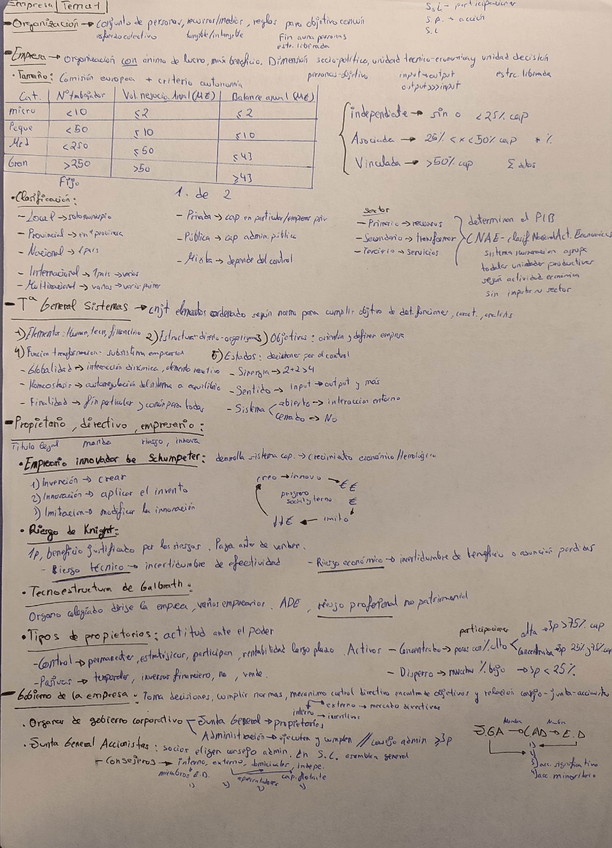 Empresa Tema 1
S.L - participaciones
S.p. → acción
S.C
- Organización → conjunto de personas, recursos/medios, reglas para objetivo común
esfuerzo colectivo tangible/intangible Fin aúna personas
estr. liberada
- Empresa → Organización con ánimo de lucro, más beneficio. Dimensión socio-política, unidad técnico-económica y unidad decisión
personas-objetivo input→output estrc. liberada
output>>input
• Tamaño: Comisión europea + criterio autonomía
Cat. Nº trabajador Vol. negocio Anual (M€) Balance anual (M€)
micro <10 ≤2 ≤2
Peque <50 ≤10 ≤10
Med <250 ≤50 ≤43
Gran >250 >50 >43
Fijo 1. de 2
independiente → sin o <25% cap
Asociada → 25% < x <50% cap + %
Vinculada → >50% cap Σ datos
• Clasificación:
- Local → solo municipio
- Provincial → en 1 provincia
- Nacional → 1 país
- Internacional → 1 país → varios
- Multinacional → varios → varios países
- Privada → cap. en particular/empresa priv
- Pública → cap admin. pública
- Mixta → depende del control
Sector
- Primario → recursos
- Secundario → transformar
- Terciario → servicios
determinan el PIB
CNAE - clasif Nacional Act. Económicas
sistema numeración agrupa
todas las unidades productivas
según actividad económica
sin importar sector
- Tª General Sistemas → cnjt elementos ordenado según norma para cumplir objtivo de det. funciones,
1) Elementos: human, tecn, financiero 2) Estructura: 3) Objetivos: orienta y define empresa
4) Función transformación - subsistema empresarial 5) Estados: decisiones por el control
- Globalidad → interacción dinámica,
- Homeostasis → autoregulación del sistema a equilibrio
- Finalidad → fin particular y común para todos
- Sinergia → 2+2>4
- Sentido → input → output y más
- Sistema abierto → interacción entorno
cerrado → No
- Propietario, directivo, empresario:
Título legal manda riesgo, innova
• Empresario innovador de Schumpeter: desarrolla sistema cap. → crecimiento económico/tecnológico
1) Invención → crear
2) Innovación → aplicar el invento
3) Imitación → modificar la innovación
creo → innovo → €€
progreso
social y tecno €
↓↓€ ← imito
• Riesgo de Knight:
1p, beneficio justificado por los riesgos. Paga antes de vender.
- Riesgo técnico → incertidumbre de efectividad - Riesgo económico → incertidumbre de beneficio o asunción perdidas
• Tecnoestructura de Galbraith:
Organo colegiado dirige la empresa, varios empresarios. ADE, riesgo profesional no patrimonial
• Tipos de propietarios: actitud ante el poder
- Control → permanecer, estratégicos, participan, rentabilidad largo plazo
- Pasivos → temporada, inversor financiero, no, vende.
participaciones
Activos - Concentrado → pocos con % alto alta → 1p >75% cap
- Disperso → muchos % bajo → 1p < 25%
- Gobierno de la empresa - Toma decisiones, cumplir normas, mecanismo control directivo encaminado objetivos y relación consejo-junta-accionista
externo → mercado directivos
interno → incentivos
• Organos de gobierno corporativo Junta General → propietarios
Administración → ejecutan y cumplen // consejo admin ≥3p
JGA → CAD → E.D
• Junta General Accionistas: socios eligen consejo admin. En S.L. asamblea general
- Consejeros → interno, externo, dominicales, indepe.
miembros E.D. cap. flotante
1) 2) 3) 4)